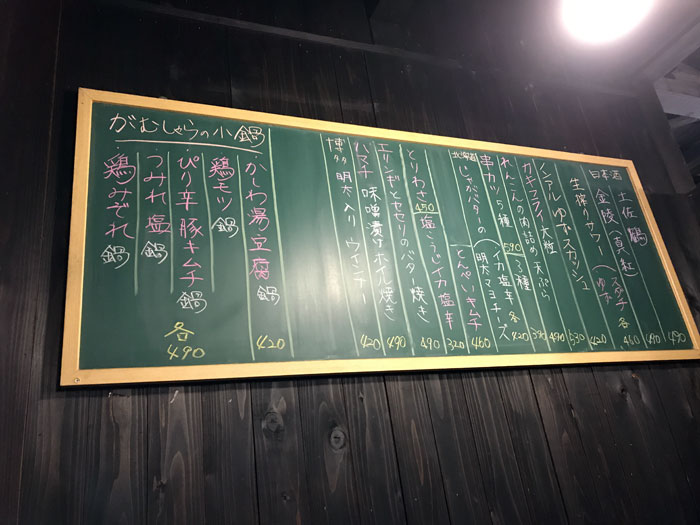 日本酒 土佐鶴 490
金陵(夏・紅) 490
生搾りサワー(スダチ ゆず 各460
ノンアルゆずスカッシュ 420
カキフライ大粒 530
れんこんの肉詰の天ぷら 490
串カツ5種 590 三種 390
北海道 じゃがバターの(イカ塩辛 明太マヨチーズ 各420
とんぺいキムチ 460
とりわさ 450 塩こうじイカ塩辛 320
エリンギとセセリのバター焼き 490
ハマチ味噌漬けホイル焼き 490
博多明太入りウインナー 420
がむしゃらの小鍋
かしわ湯豆腐鍋 420
鶏モツ鍋
ぴり辛豚キムチ鍋
つみれ塩鍋
鶏みぞれ鍋
各490